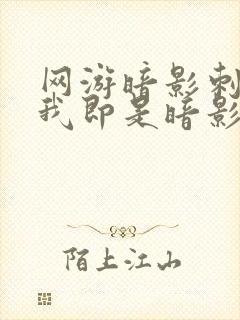 网游暗影刺
我即是暗影
陌上江山